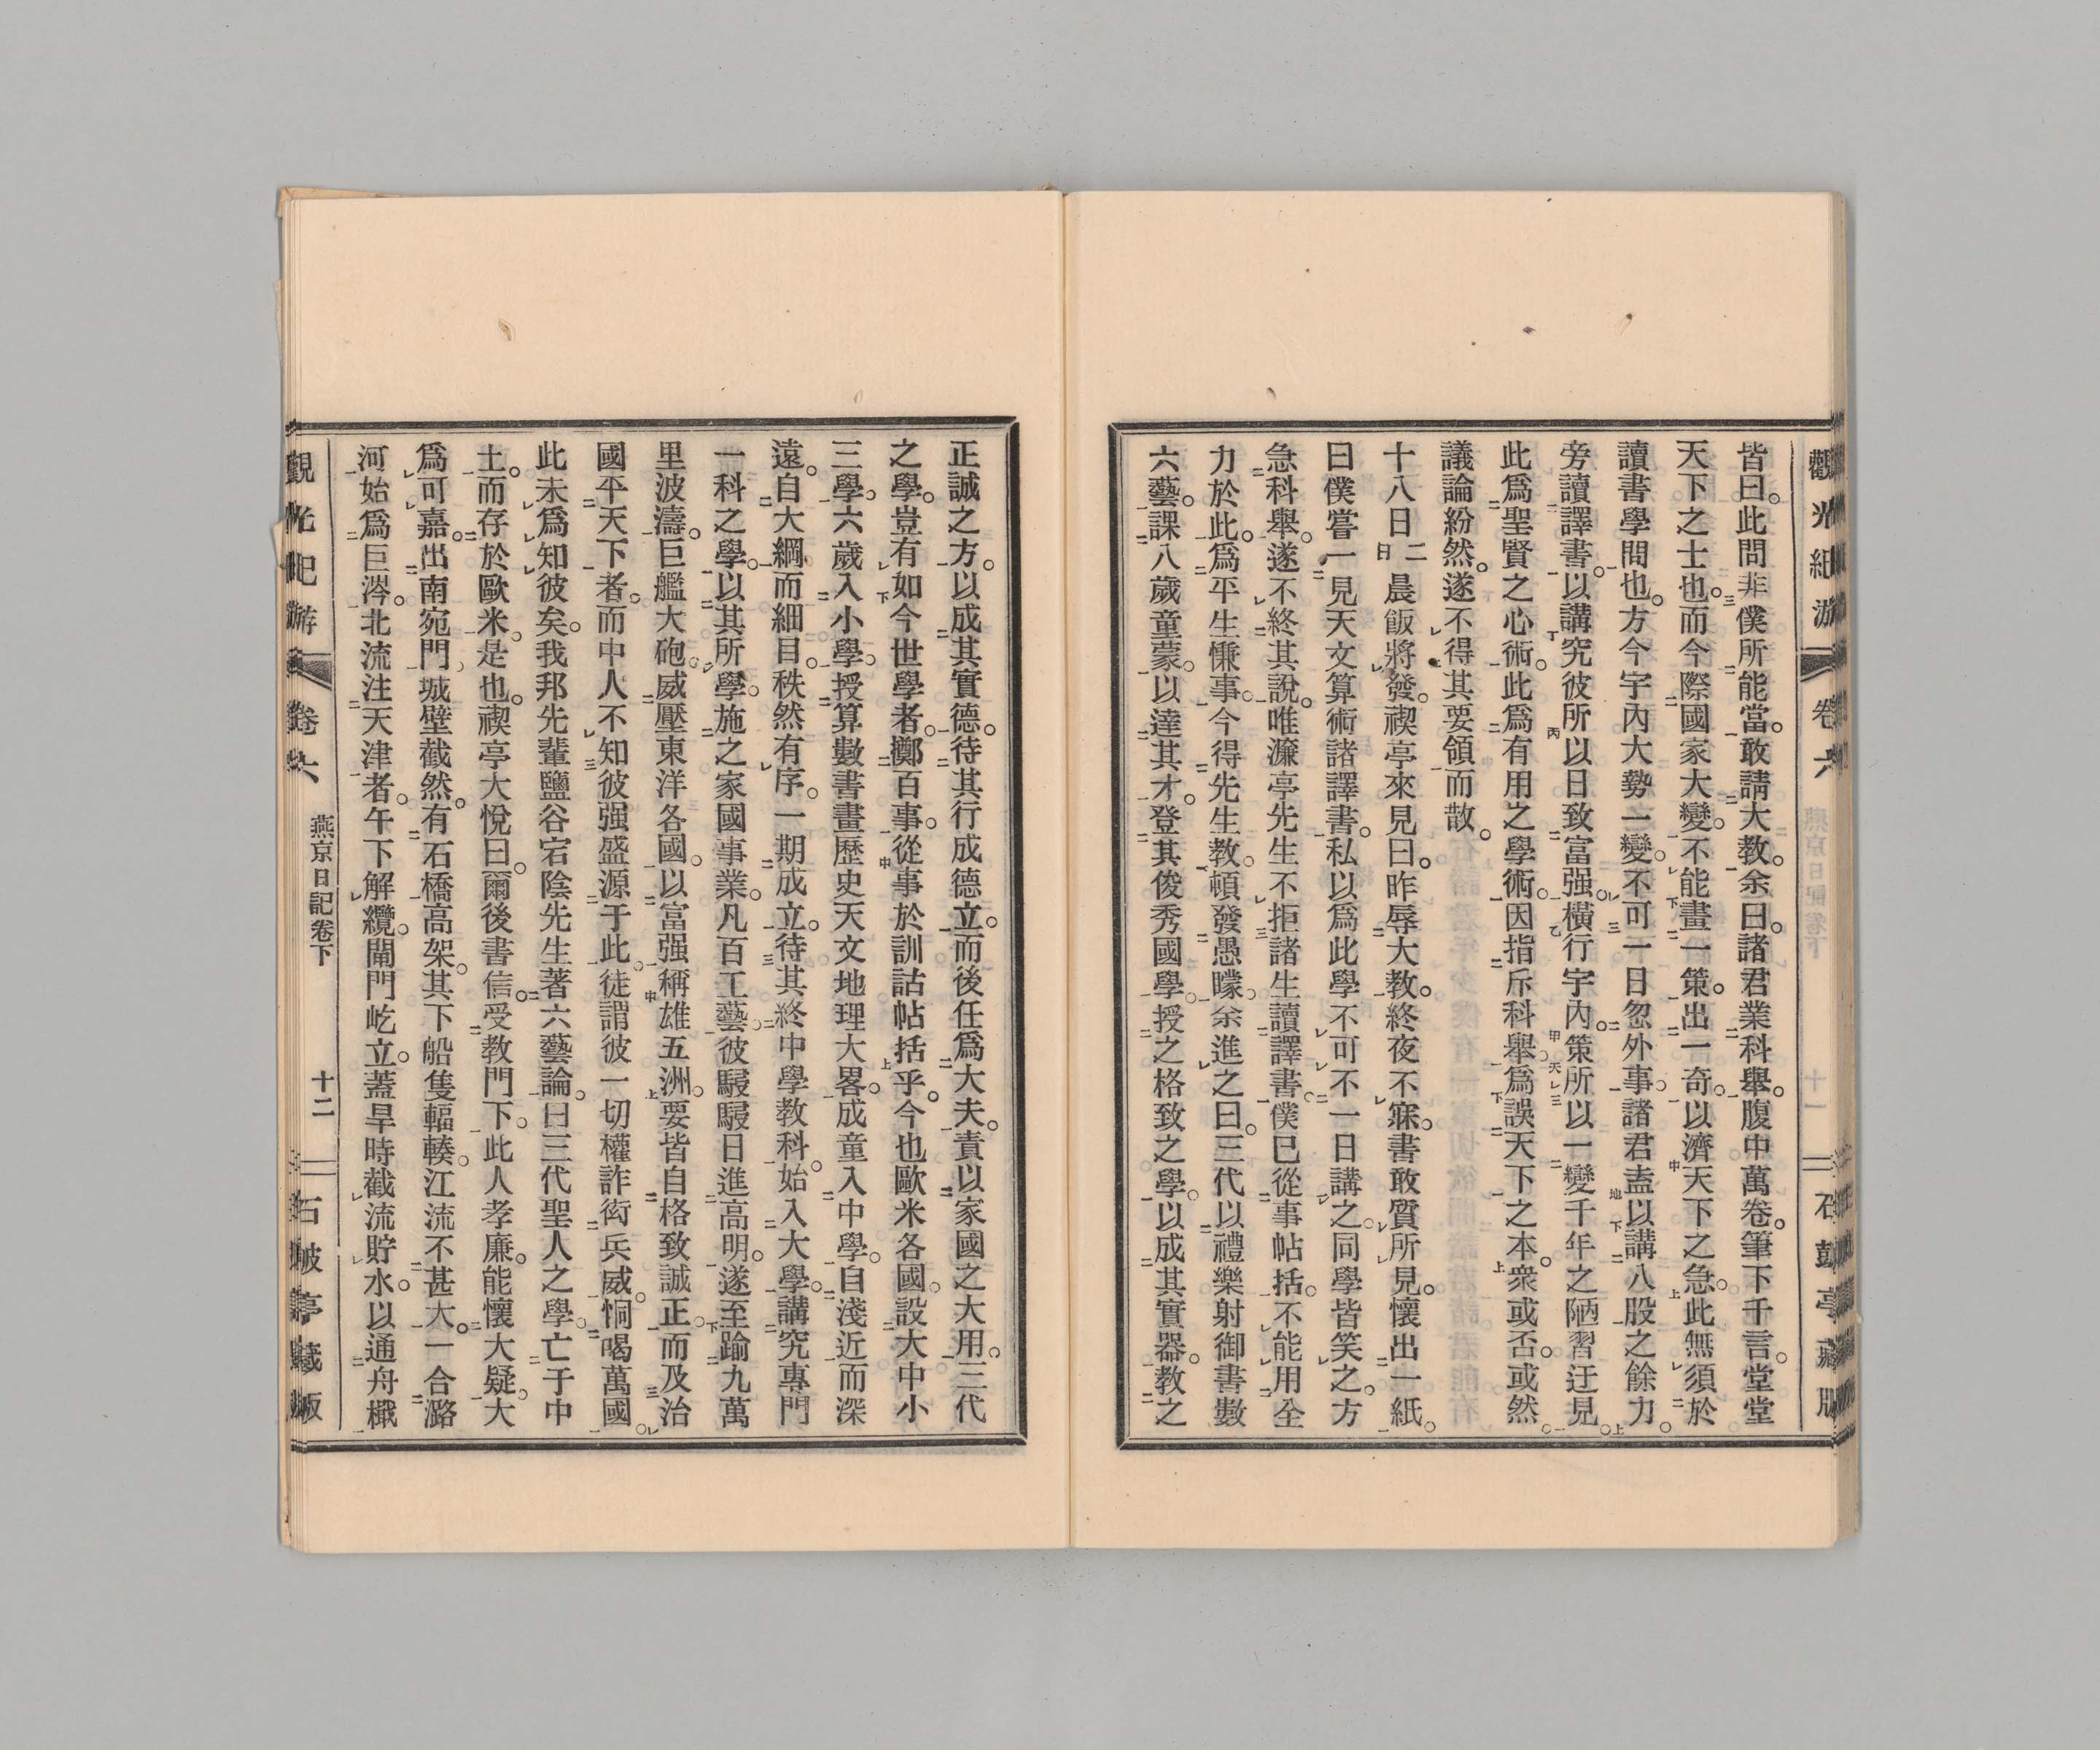 觀光紀游 卷六 燕京日記卷下 十一 石鼓亭藏版
皆曰。此問非僕所能當。敢請大教。余曰。諸君業科舉。腹中萬卷。筆下千言。堂堂
天下之士也。而今際國家大變。不能畫一策。出一奇。以濟天下之急。此無須於
讀書學問也。方今宇內大勢一變。不可一日忽外事。諸君盍以講八股之餘力。
旁讀譯書。以講究彼所以日致富强。橫行宇內。策所以一變千年之陋習迂見。
此爲聖賢之心術。此爲有用之學術。因指斥科舉爲誤天下之本。衆或否。或然。
議論紛然。遂不得其要領而散。
十八日 二日 晨飯將發。禊亭來見曰。昨辱大教。終夜不寐。書敢質所見。懷出一紙。
曰僕嘗一見天文算術諸譯書。私以爲此學不可不一日講之。同學皆笑之。方
急科舉。遂不終其說。唯濂亭先生不拒諸生讀譯書。僕已從事帖括。不能用全
力於此。爲平生慊事。今得先生教。頓發愚曚。余進之曰。三代以禮樂射御書數
六藝。課八歲童蒙。以達其才。登其俊秀國學。授之格致之學。以成其實器。教之
正誠之方。以成其實德。待其行成德立。而後任爲大夫。責以家國之大用。三代
之學。豈有如今世學者。擲百事。從事於訓詁帖括乎。今也歐米各國。設大中小
三學。六歲入小學。授算數書畫歷史天文地理大畧。成童入中學。自淺近而深
遠。自大綱而細目。秩然有序。一期成立。待其終中學教科。始入大學。講究專門
一科之學。以其所學。施之家國事業。凡百工藝。彼駸駸日進高明。遂至踰九萬
里波濤。巨艦大砲。威壓東洋各國。以富强稱雄五洲。要皆自格致誠正而及治
國平天下者。而中人不知彼强盛源于此。徒謂彼一切權詐衒兵威。恫喝萬國。
此未爲知彼矣。我邦先輩鹽谷宕陰先生著六藝論。曰三代聖人之學。亡于中
土。而存於歐米。是也。禊亭大悅曰。爾後書信。受教門下。此人孝廉。能懷大疑。大
爲可嘉。出南宛門。城壁截然。有石橋高架。其下船隻輻輳。江流不甚大。一合潞
河。始爲巨涔。北流注天津者。午下解纜。閘門屹立。蓋旱時截流貯水。以通舟檝
觀光紀游 卷六 燕京日記卷下 十二 石鼓亭藏版